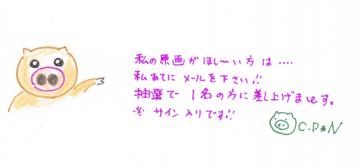 私の原画がほし～い方は‥‥
私あてにメールを下さい!!
抽選で1名の方に差し上げまぁす。
※サイン入りです!!
C.P*N